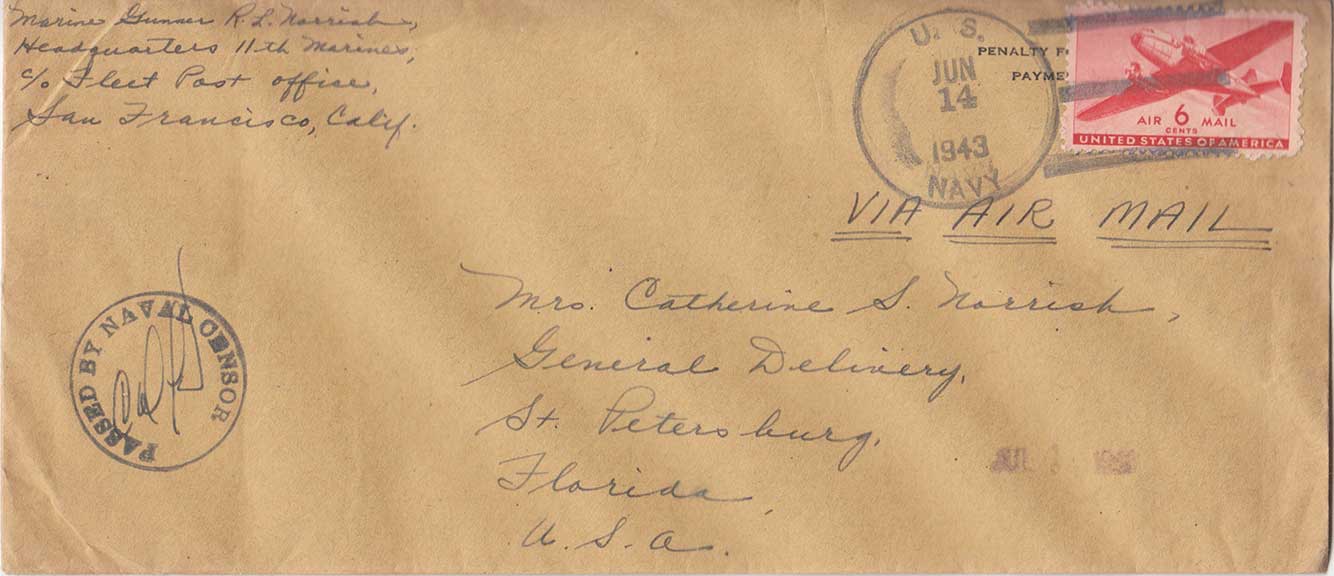 Marine Gunner R. L. Norrish,
Headquarters 11th Marines,
c/o Fleet Post Office,
San Francisco, Calif.
U. S.
JUN
14
1943
NAVY
PENALTY F
PAYME
AIR 6 MAIL
CENTS
UNITED STATES OF AMERICA
VIA AIR MAIL
PASSED BY NAVAL CENSOR
Mrs. Catherine S. Norrish,
General Delivery,
St. Petersburg,
Florida,
U. S. A.